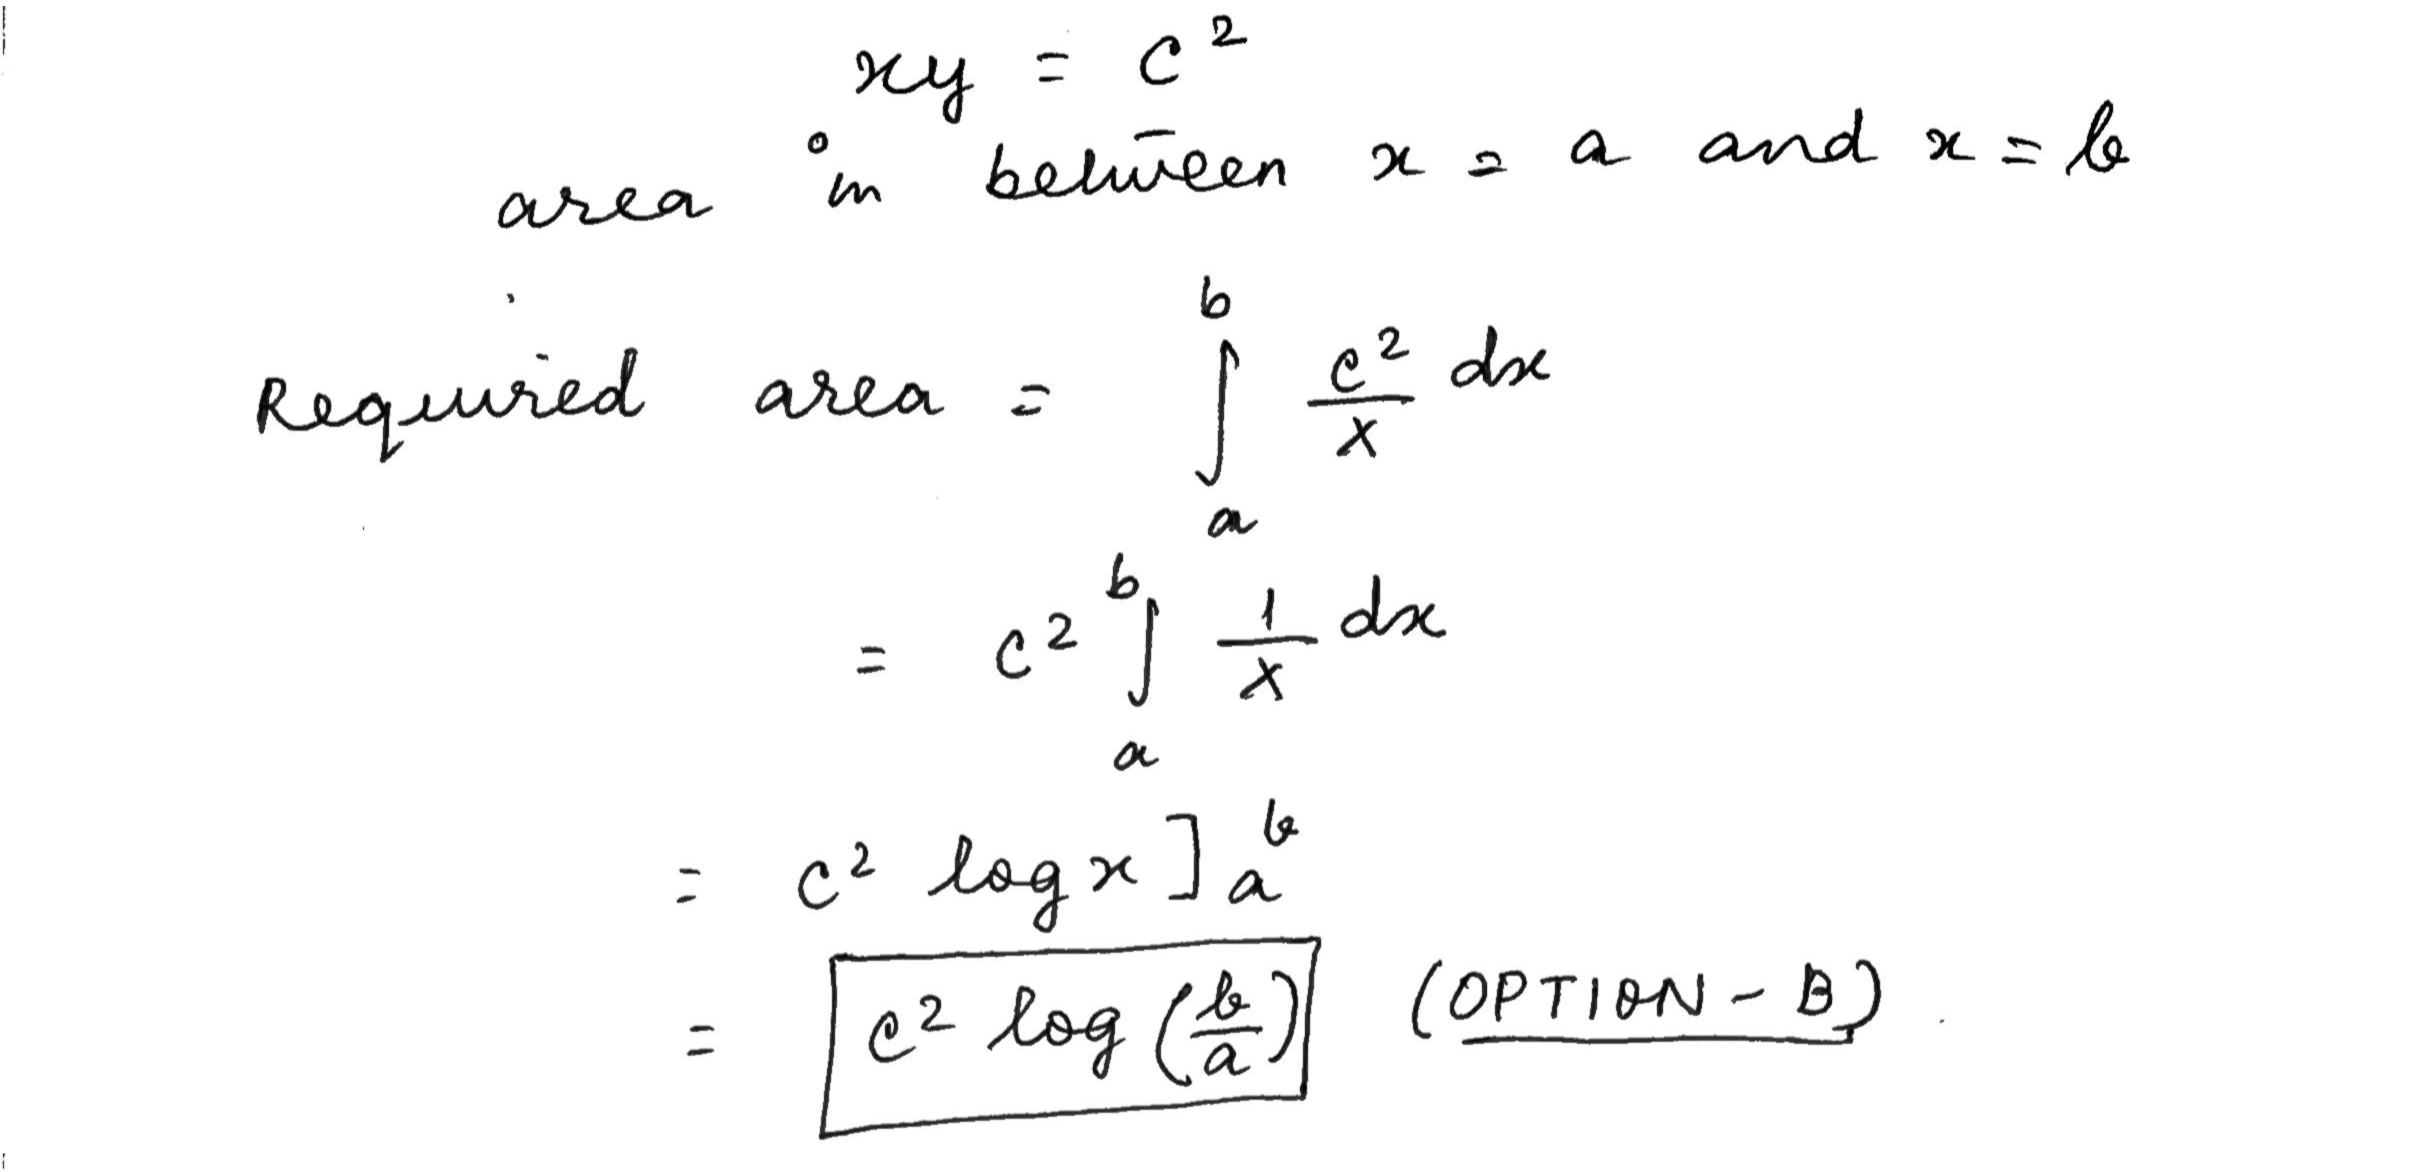 xy = c²
area in between x = a and x = b
Required area = ∫_a^b c²/x dx
= c² ∫_a^b 1/x dx
= c² log x ]_a^b
= c² log (b/a) (OPTION - B)